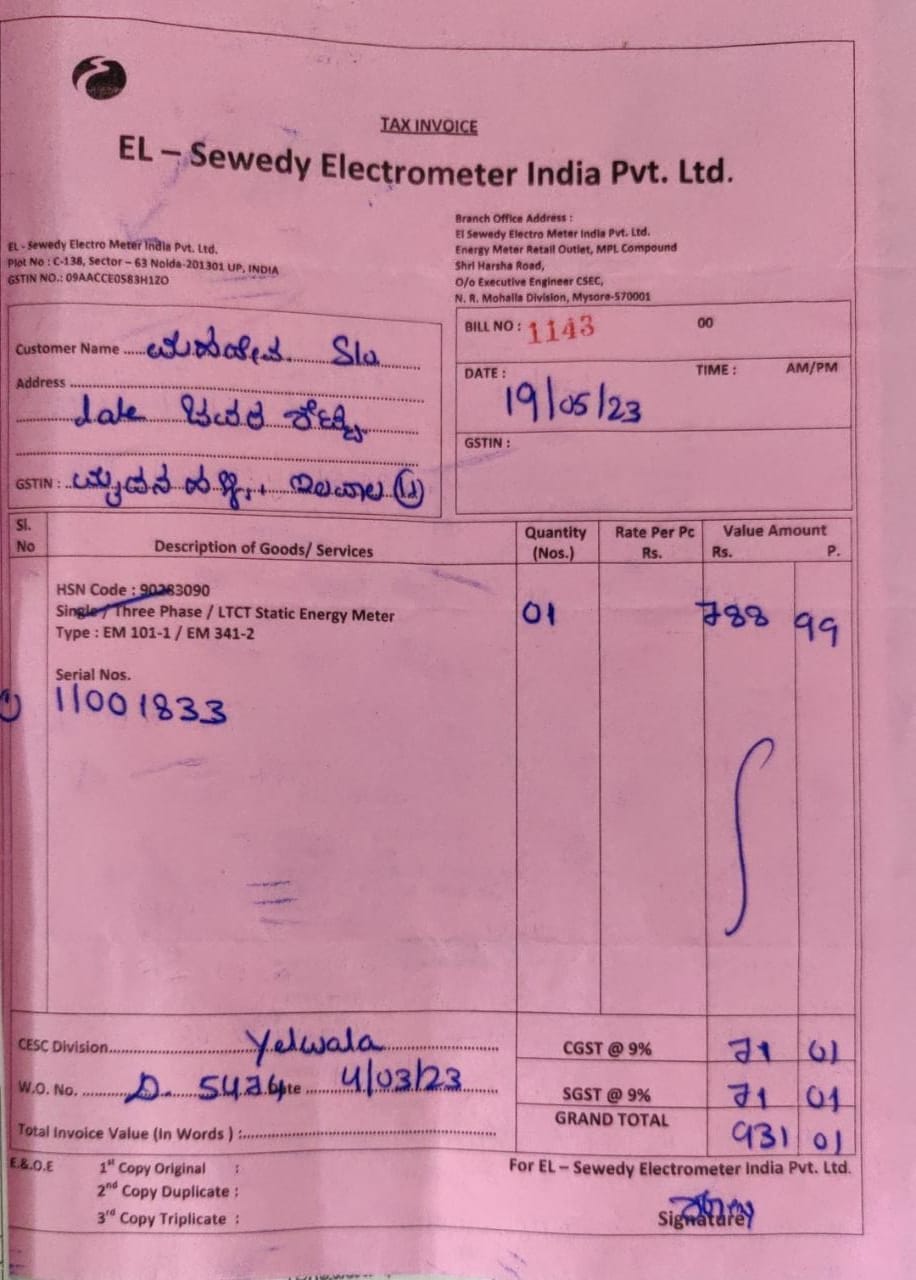 TAX INVOICE
EL – Sewedy Electrometer India Pvt. Ltd.
EL - Sewedy Electro Meter India Pvt. Ltd.
Plot No : C-138, Sector – 63 Noida-201301 UP, INDIA
GSTIN NO.: 09AACCE0583H1ZO
Branch Office Address :
El Sewedy Electro Meter India Pvt. Ltd.
Energy Meter Retail Outlet, MPL Compound
Shri Harsha Road,
O/o Executive Engineer CSEC,
N. R. Mohalla Division, Mysore-570001
Customer Name ...... S/o
Address
late
GSTIN :
BILL NO : 1143 00
DATE : TIME : AM/PM
19/05/23
GSTIN :
Sl. No Description of Goods/ Services Quantity (Nos.) Rate Per Pc Rs. Value Amount Rs. P.
HSN Code : 90283090
Single / Three Phase / LTCT Static Energy Meter 01 788 99
Type : EM 101-1 / EM 341-2
Serial Nos.
1) 11001833
CESC Division Yelwala CGST @ 9% 71 01
W.O. No. Date 4/03/23 SGST @ 9% 71 01
GRAND TOTAL 931 01
Total Invoice Value (In Words ) :
E.&.O.E 1st Copy Original :
2nd Copy Duplicate :
3rd Copy Triplicate :
For EL – Sewedy Electrometer India Pvt. Ltd.
Signature